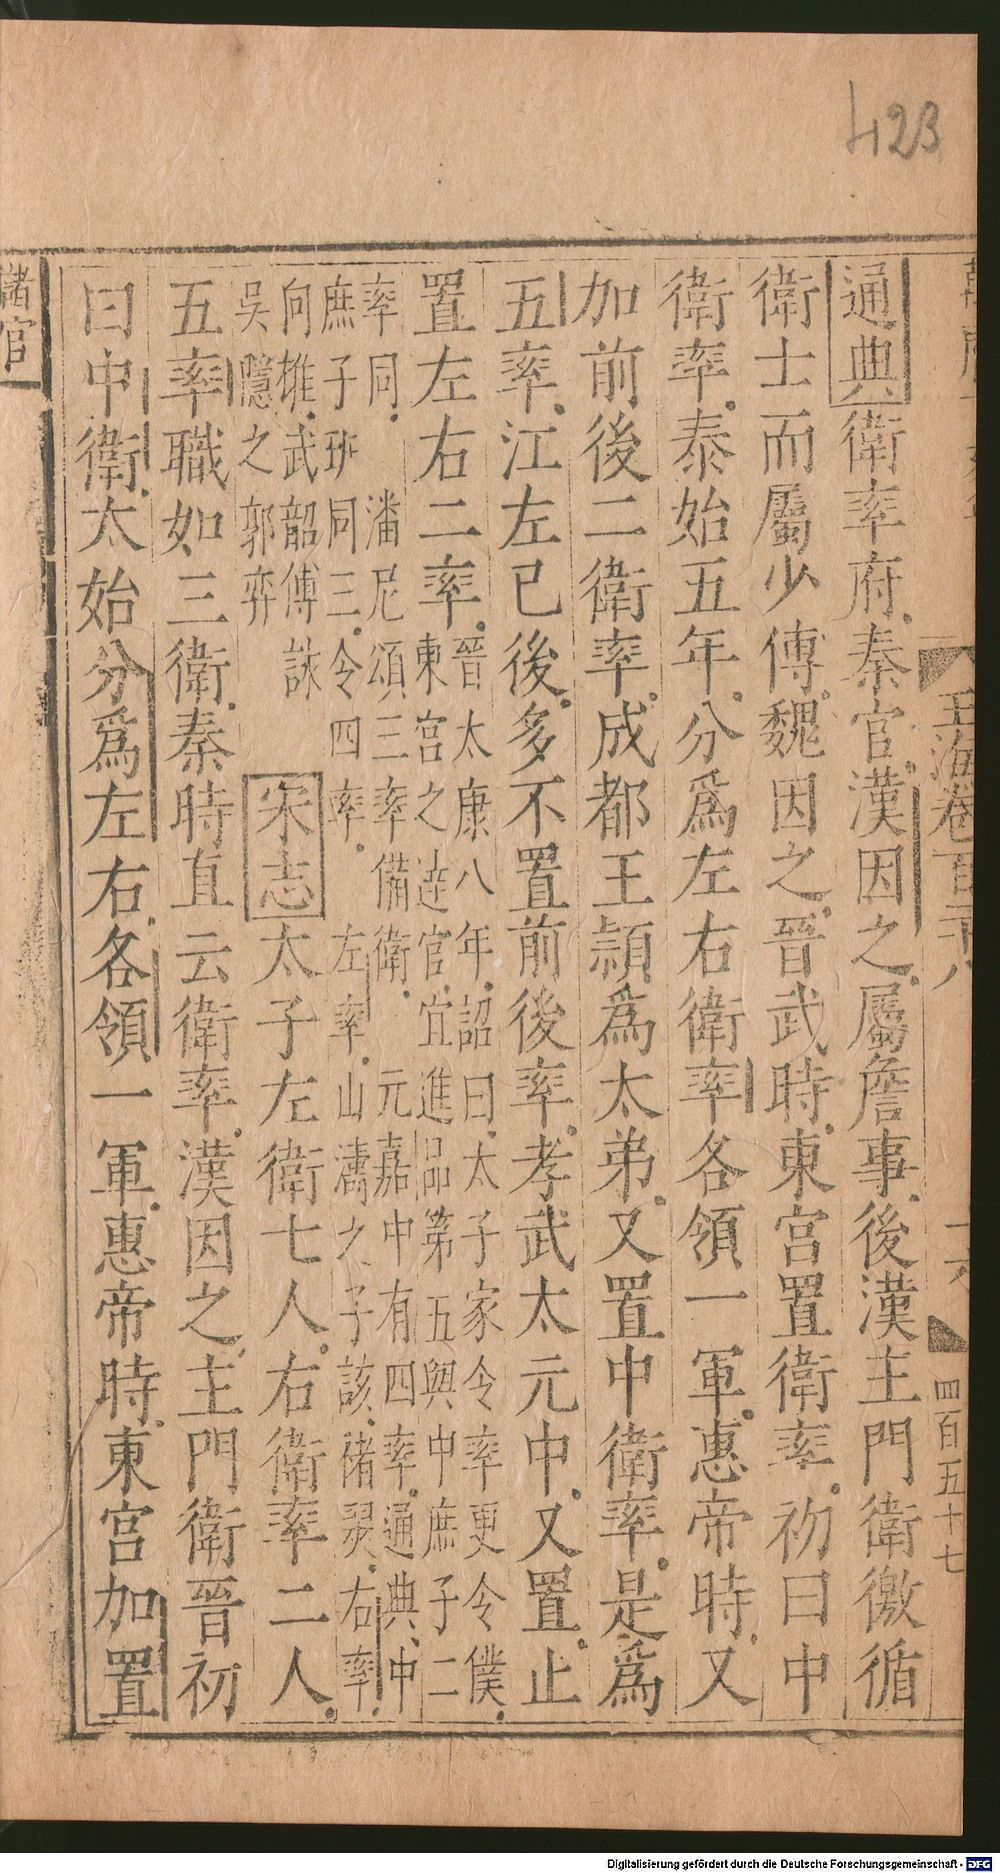 423
玉海卷百二十八
十六
四百五十七
通典衛率府秦官漢因之屬詹事後漢主門衛徼循
衛士而屬少傅魏因之晉武時東宮置衛率初曰中
衛率泰始五年分爲左右衛率各領一軍惠帝時又
加前後二衛率成都王頴爲太弟又置中衛率是爲
五率江左已後多不置前後率孝武太元中又置止
置左右二率
晉太康八年詔曰太子家令率更令僕
東宮之達官宜進品第五與中庶子二
率同 潘尼頌三率備衛 元嘉中有四率通典中
庶子班同三令四率 左率山濤之子該褚翜右率
向雄武韶傅詠
吳隱之郭弈
宋志太子左衛七人右衛率二人
五率職如三衛秦時直云衛率漢因之主門衛晉初
曰中衛太始分爲左右各領一軍惠帝時東宮加置
諸官
Digitalisierung gefördert durch die Deutsche Forschungsgemeinschaft - DFG